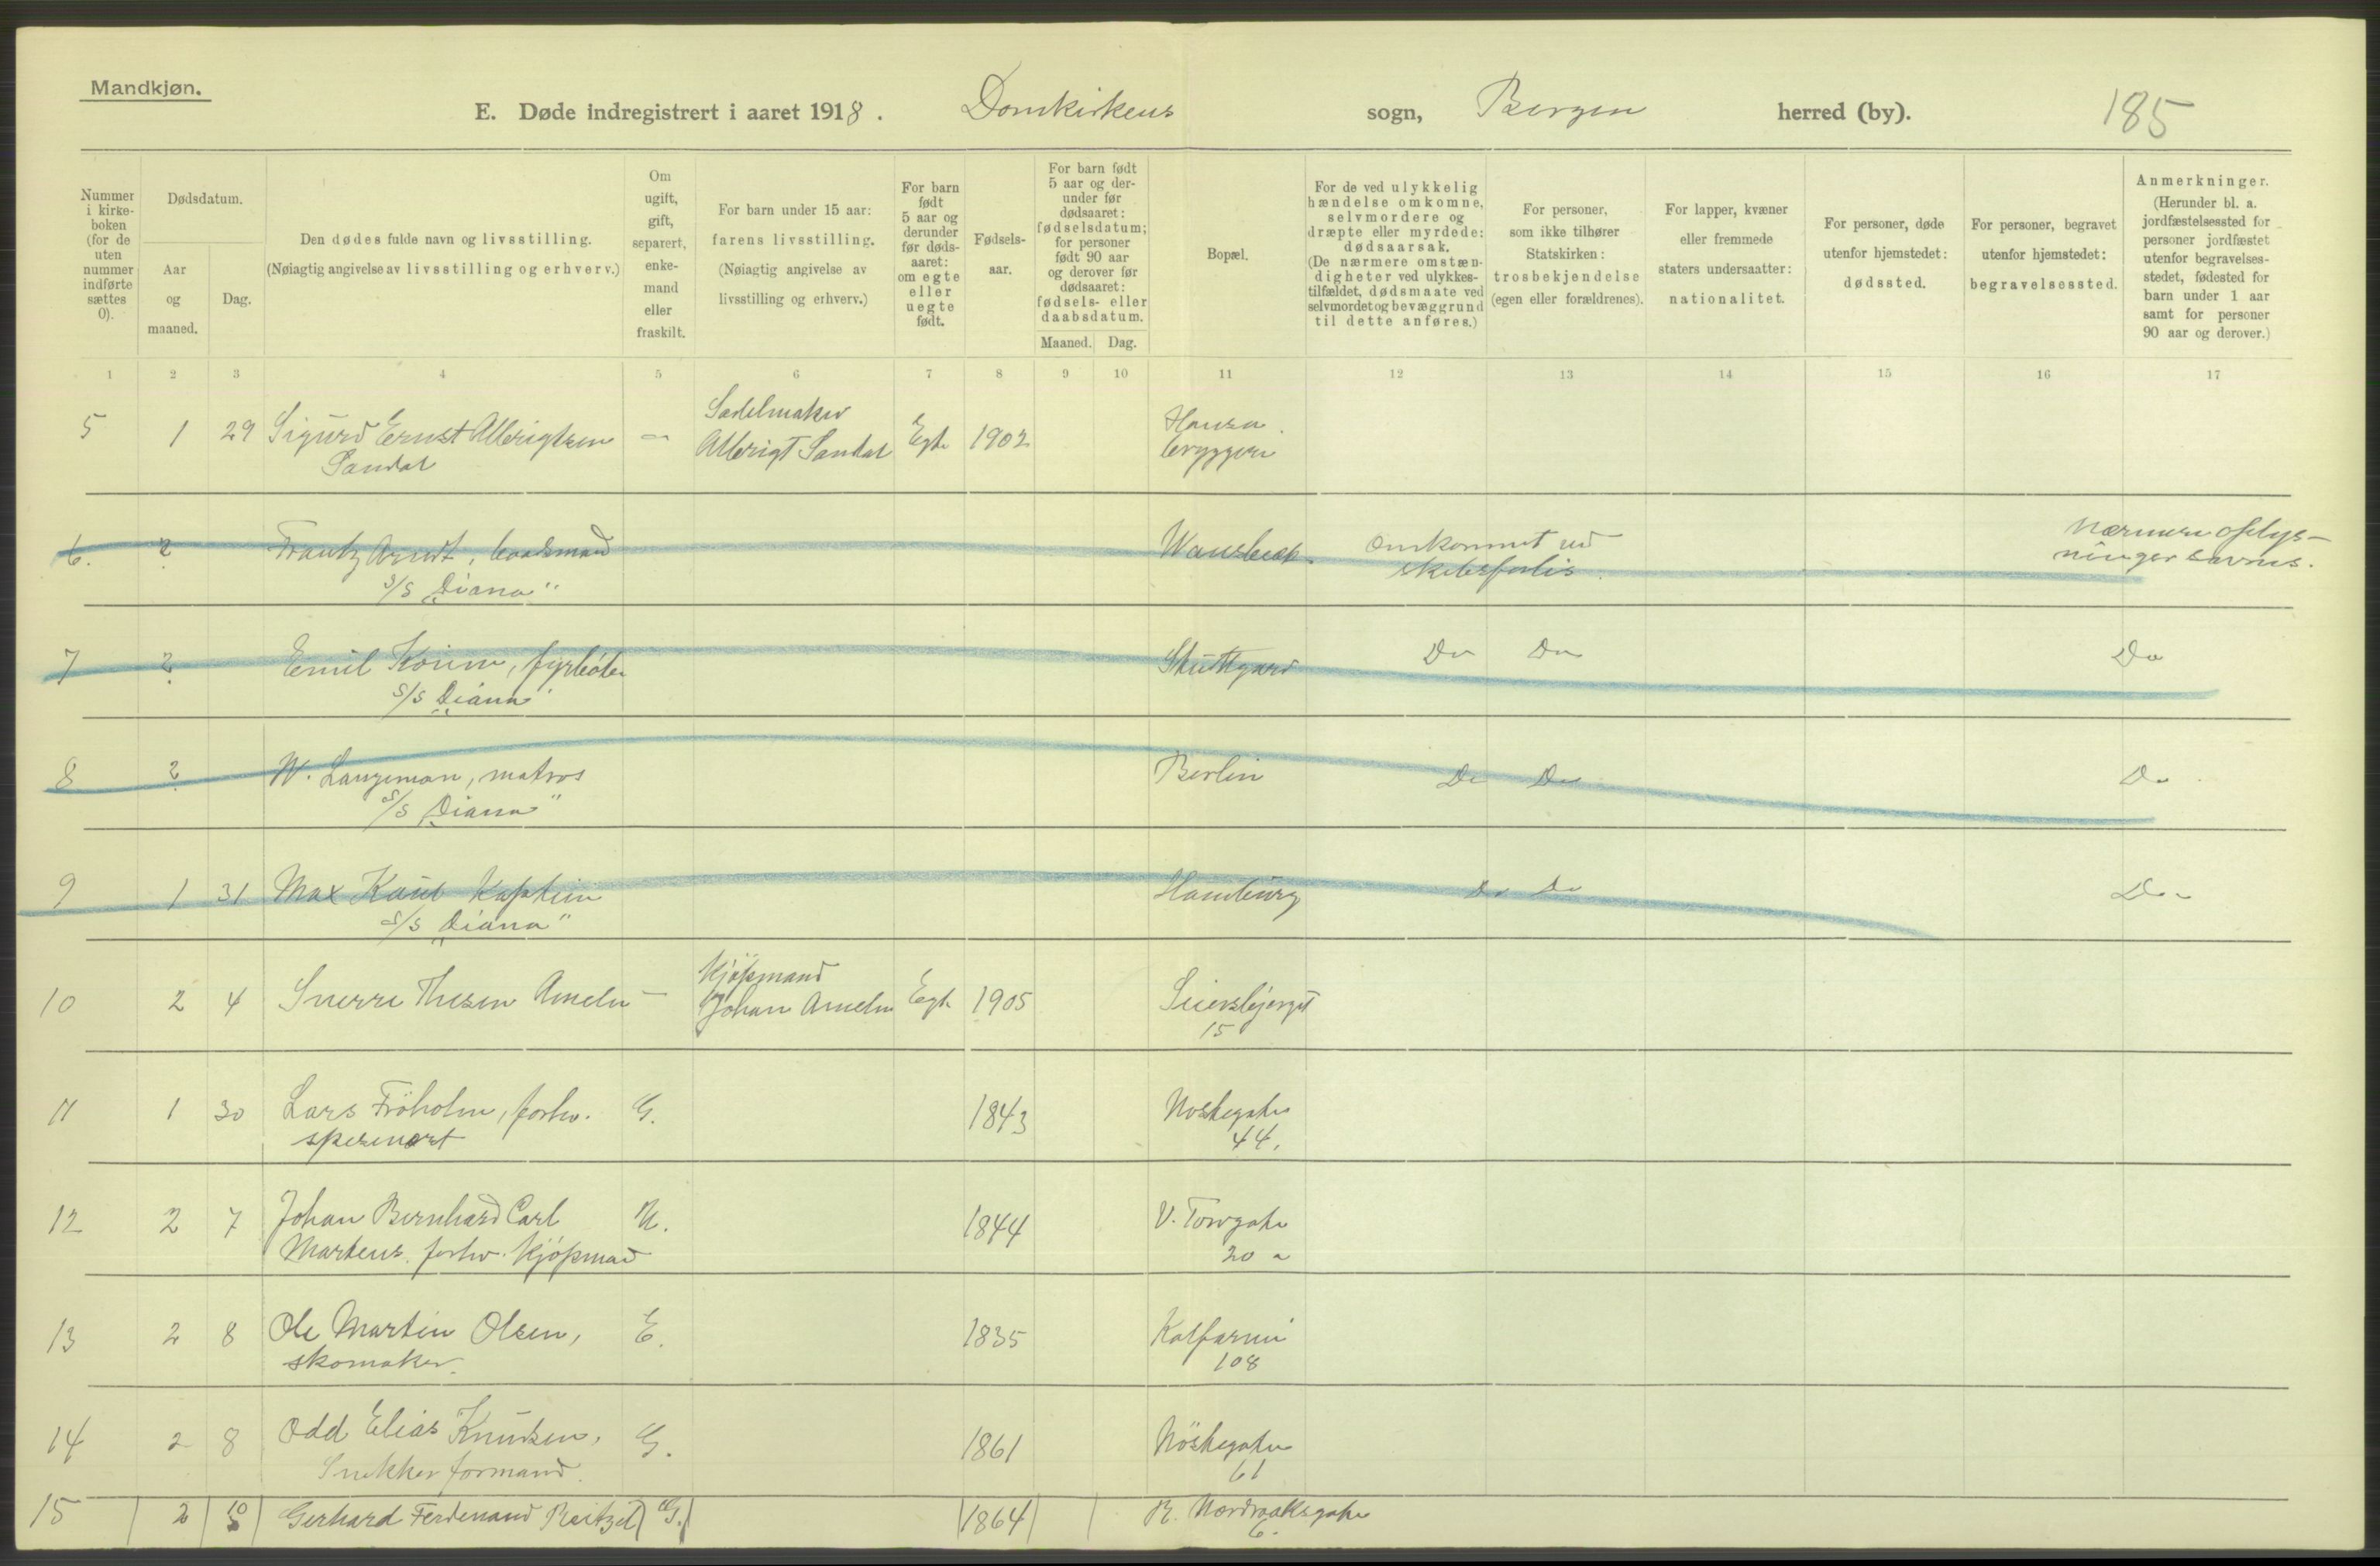 Mandkjøn.
E. Døde indregistrert i aaret 1918. Domkirkens sogn, Bergen herred (by). 185
Nummer i kirke-boken (for de uten nummer indførte sættes 0).
Dødsdatum.
Aar og maaned.
Dag.
Den dødes fulde navn og livsstilling.
(Nøiagtig angivelse av livsstilling og erhverv.)
Om ugift, gift, separert, enke-mand eller fraskilt.
For barn under 15 aar: farens livsstilling.
(Nøiagtig angivelse av livsstilling og erhverv.)
For barn født 5 aar og derunder før døds-aaret: om egte eller uegte født.
Fødsels-aar.
For barn født 5 aar og der-under før dødsaaret: fødselsdatum; for personer født 90 aar og derover før dødsaaret: fødsels- eller daabsdatum.
Maaned. Dag.
Bopæl.
For de ved ulykkelig hændelse omkomne, selvmordere og dræpte eller myrdede: dødsaarsak.
(De nærmere omstæn-digheter ved ulykkes-tilfældet, dødsmaate ved selvmordet og bevæggrund til dette anføres.)
For personer, som ikke tilhører Statskirken: trosbekjendelse (egen eller forældrenes).
For lapper, kvæner eller fremmede staters undersaatter: nationalitet.
For personer, døde utenfor hjemstedet: dødssted.
For personer, begravet utenfor hjemstedet: begravelsessted.
Anmerkninger.
(Herunder bl. a. jordfæstelsessted for personer jordfæstet utenfor begravelses-stedet, fødested for barn under 1 aar samt for personer 90 aar og derover.)
1 2 3 4 5 6 7 8 9 10 11 12 13 14 15 16 17
Sadelmaker Hansa
5 1 29 Sigurd Ernst Albrigtsen — Albrigt Sandal Egte 1902 bryggeri
Sandal
6. ? Frantz Arndt, baadsmand Wansbeck. Omkommet ved Nærmere oplys-
S/S "Diana" skibsforlis. ninger savnes.
7 ? Emil , fyrbøter Stuttgard Do Do Do
S/S "Diana"
8 ? W. Langeman, matros Berlin Do Do Do
S/S "Diana"
9 1 31 Max Kaptein Hamburg Do Do Do
S/S "Diana"
Kjøpmand
10 2 4 Sverre Thesen Ameln — Johan Ameln Egte 1905 Seiersbjerget
15
11 1 30 Lars Frøholm, forhv. G. 1843 Nøstegaten
44.
12 2 7 Johan Bernhard Carl U. 1844 V. Torvgate
Martens forhv. Kjøpmand 20 a
13 2 8 Ole Martin Olsen, E. 1835 Kalfarvei
skomaker. 108
14 2 8 Odd Elias Knudsen, G. 1861 Nøstegaten
Snekker formand. 61
15 2 10 Gerhard Ferdinand Reitzel G. 1864 R. Nordraaksgate
6.